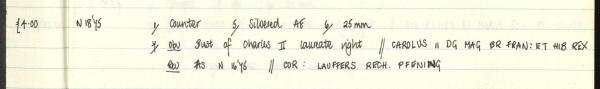 £4.00 N 18'45 1/ Counter 5/ Silvered AE 6/ 25mm
7/ Obv Bust of Charles II laureate right // CAROLUS II DG MAG BR FRAN: ET HIB REX
Rev AS N 16'45 // COR: LAUFFERS RECH. PFENING